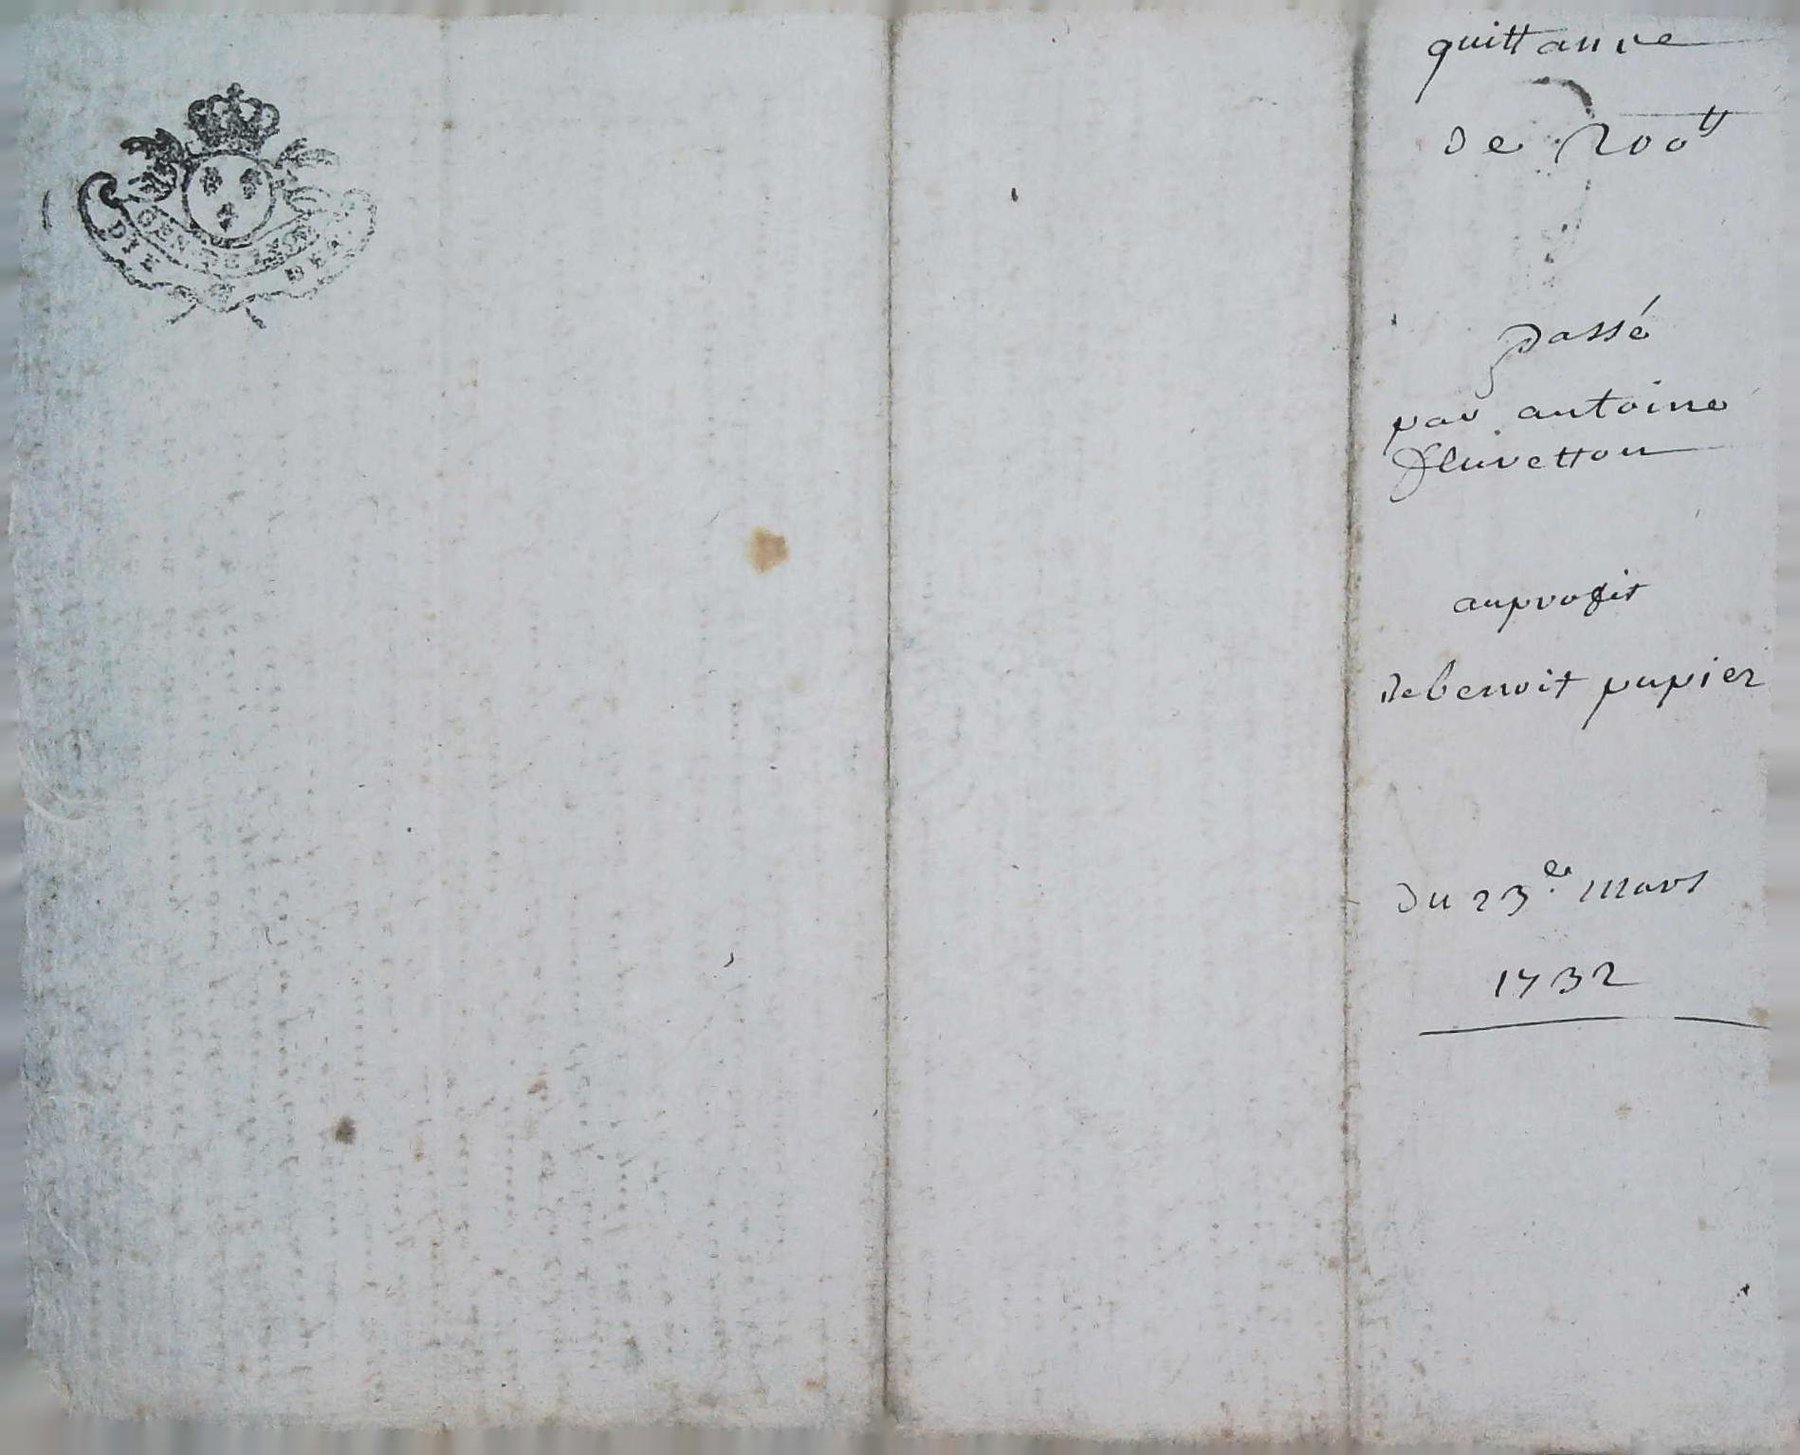 GEN DE LYON
DIX DEN
quittance
de 200lt
passé
par antoine
fluvetton
auprofit
debenoit pupier
du 23e mars
1732